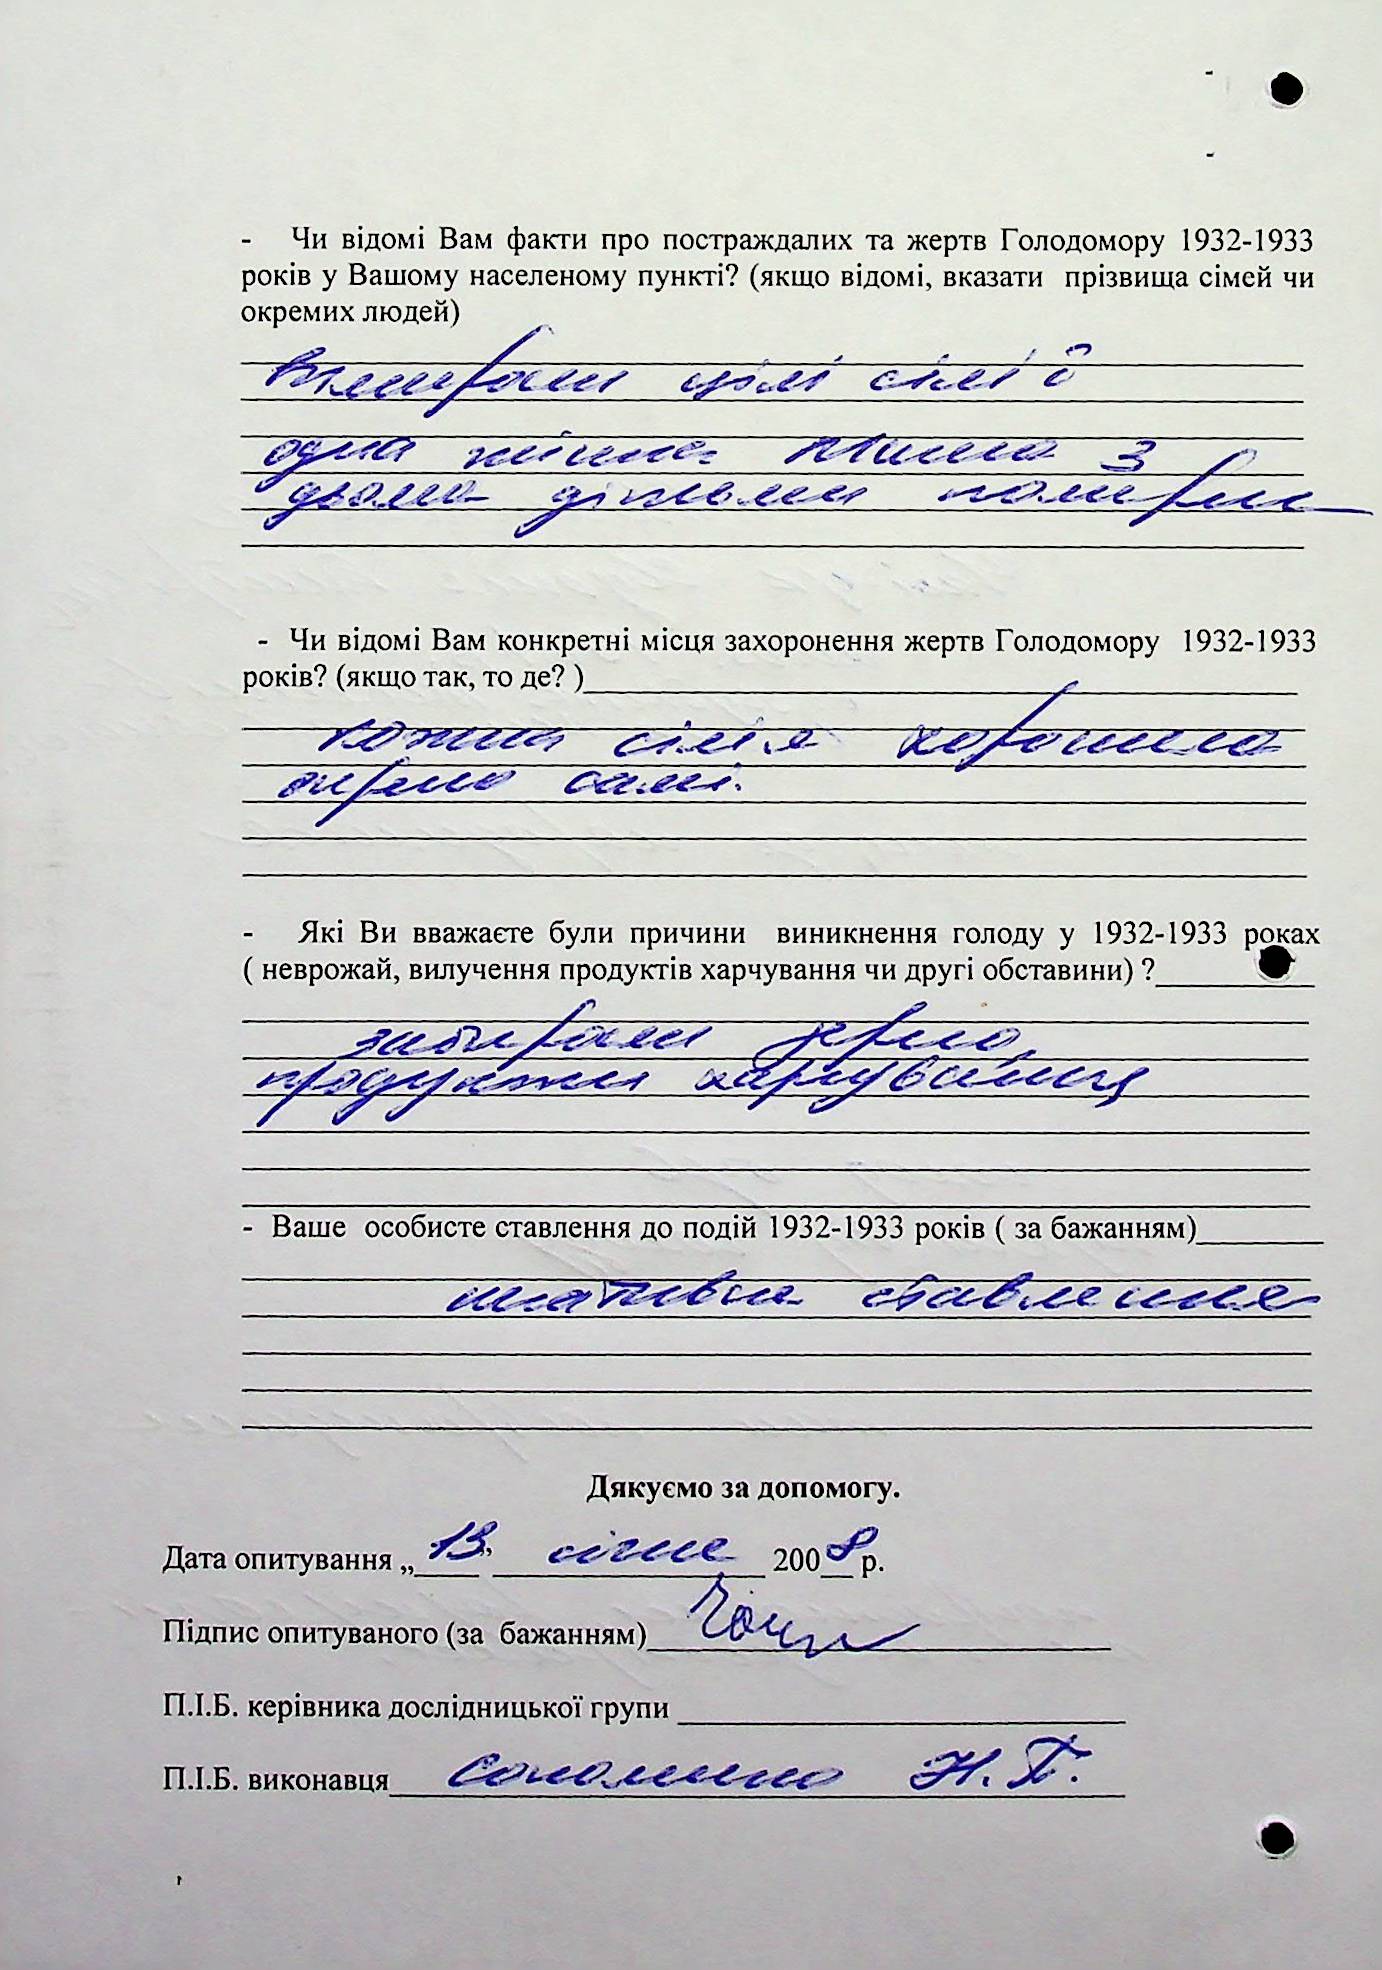 - Чи відомі Вам факти про постраждалих та жертв Голодомору 1932-1933
років у Вашому населеному пункті? (якщо відомі, вказати прізвища сімей чи
окремих людей)
вимирали цілі сім'ї
одна жінка з
двома дітьми померли
- Чи відомі Вам конкретні місця захоронення жертв Голодомору 1932-1933
років? (якщо так, то де? )
кожна сім'я хоронила
окремо самі.
- Які Ви вважаєте були причини виникнення голоду у 1932-1933 роках
( неврожай, вилучення продуктів харчування чи другі обставини) ?
забирали зерно,
продукти харчування
- Ваше особисте ставлення до подій 1932-1933 років ( за бажанням)
негативне ставлення
Дякуємо за допомогу.
Дата опитування „13” січня 2008 р.
Підпис опитуваного (за бажанням)
П.І.Б. керівника дослідницької групи
П.І.Б. виконавця Н.П.